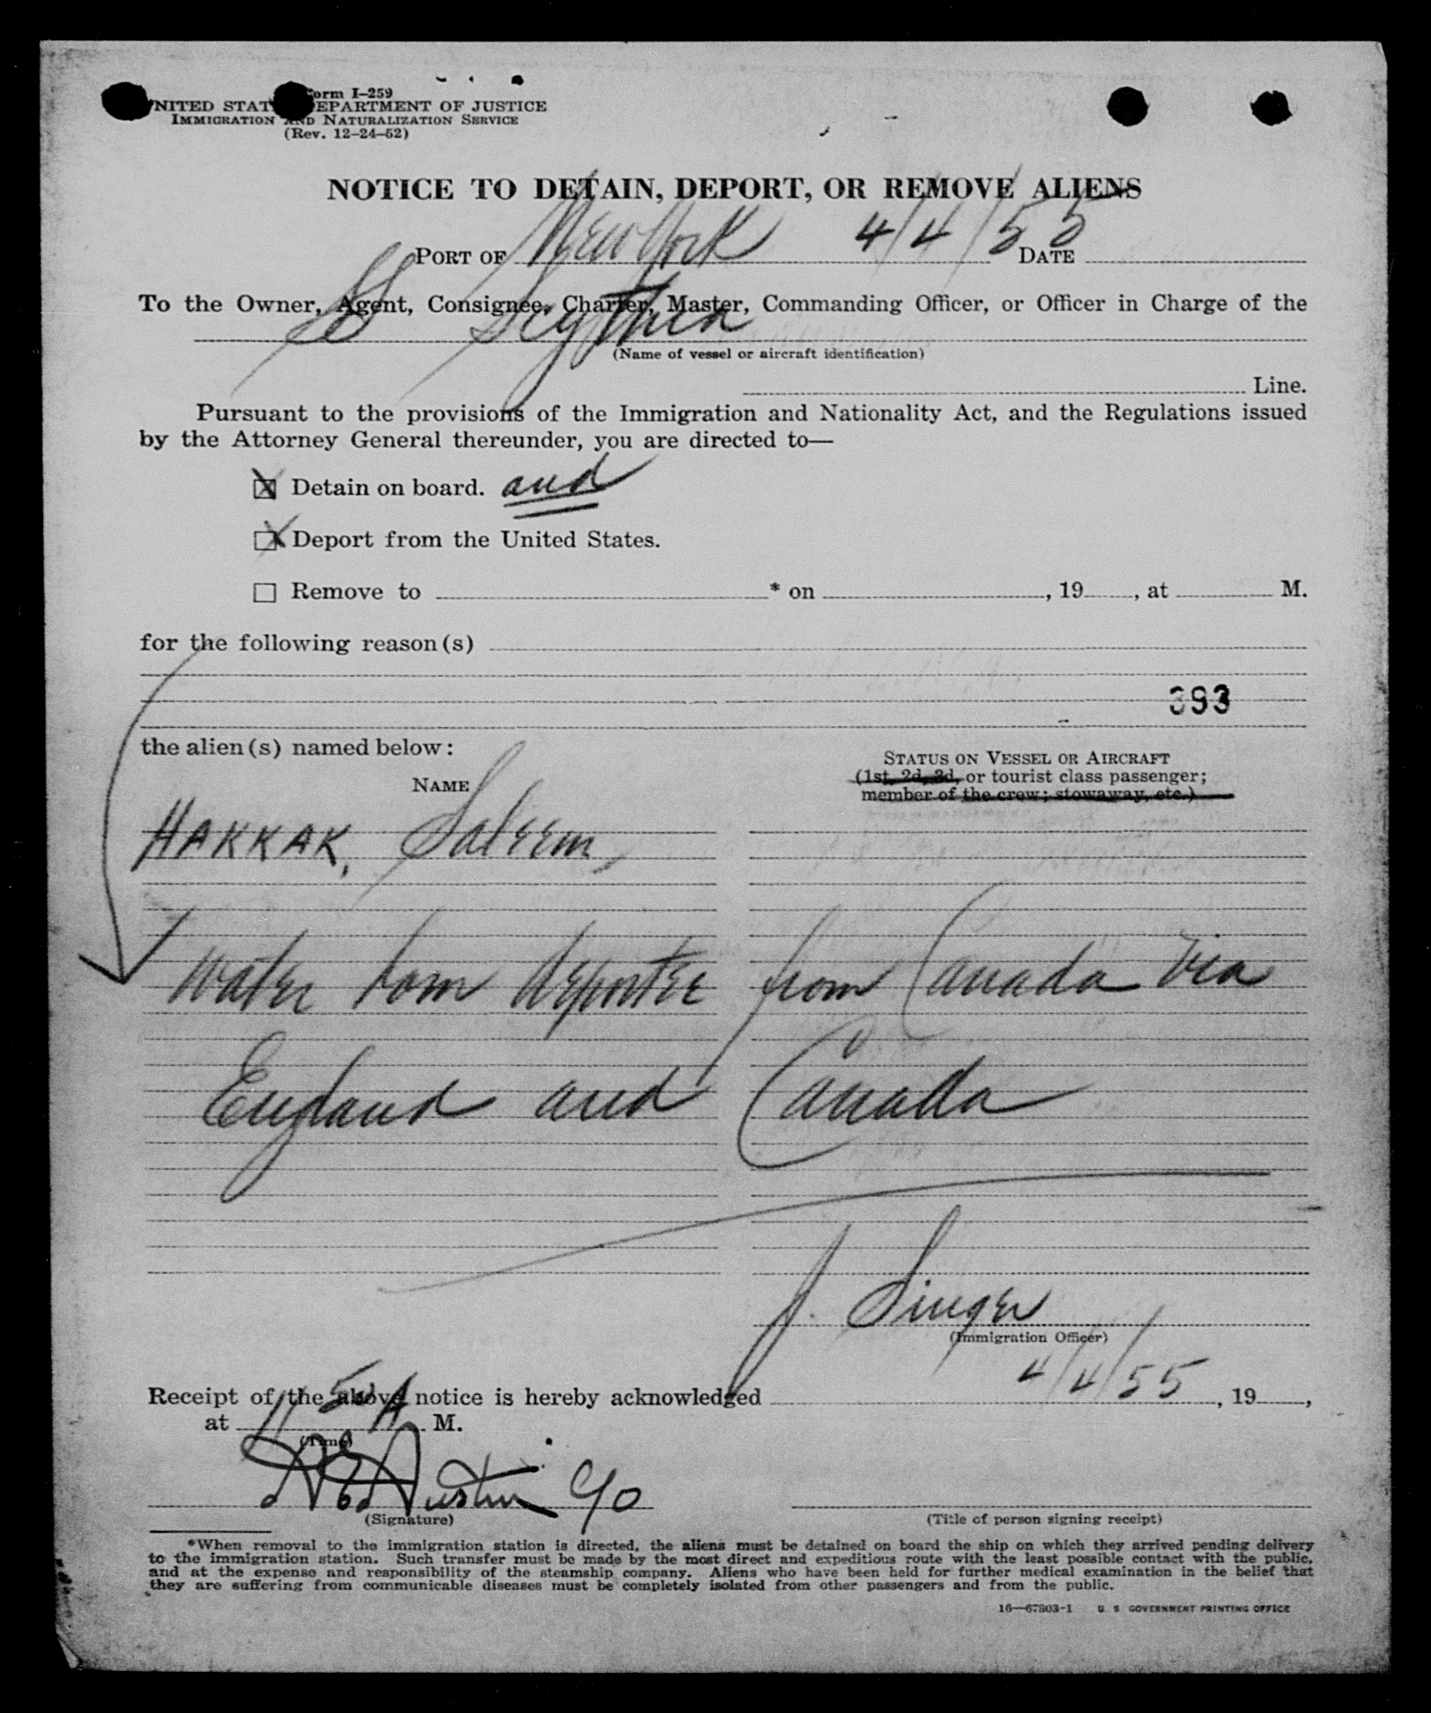 Form I-259
UNITED STATES DEPARTMENT OF JUSTICE
IMMIGRATION AND NATURALIZATION SERVICE
(Rev. 12-24-52)
NOTICE TO DETAIN, DEPORT, OR REMOVE ALIENS
PORT OF New York DATE 4/4/55
To the Owner, Agent, Consignee, Charter, Master, Commanding Officer, or Officer in Charge of the
SS Scythia
(Name of vessel or aircraft identification)
Line.
Pursuant to the provisions of the Immigration and Nationality Act, and the Regulations issued
by the Attorney General thereunder, you are directed to—
☒ Detain on board. and
☒ Deport from the United States.
☐ Remove to * on , 19 , at M.
for the following reason(s)
393
the alien(s) named below:
STATUS ON VESSEL OR AIRCRAFT
NAME
(1st, 2d, 3d, or tourist class passenger;
member of the crew; stowaway, etc.)
HAKKAK, Saleem
Water born deportee from Canada via
England and Canada
J. Singer
(Immigration Officer)
Receipt of the above notice is hereby acknowledged 4/4/55, 19 ,
at 11 50 A M.
(Time)
Austin
(Signature)
(Title of person signing receipt)
*When removal to the immigration station is directed, the aliens must be detained on board the ship on which they arrived pending delivery
to the immigration station. Such transfer must be made by the most direct and expeditious route with the least possible contact with the public,
and at the expense and responsibility of the steamship company. Aliens who have been held for further medical examination in the belief that
they are suffering from communicable diseases must be completely isolated from other passengers and from the public.
16—67803-1 U. S. GOVERNMENT PRINTING OFFICE